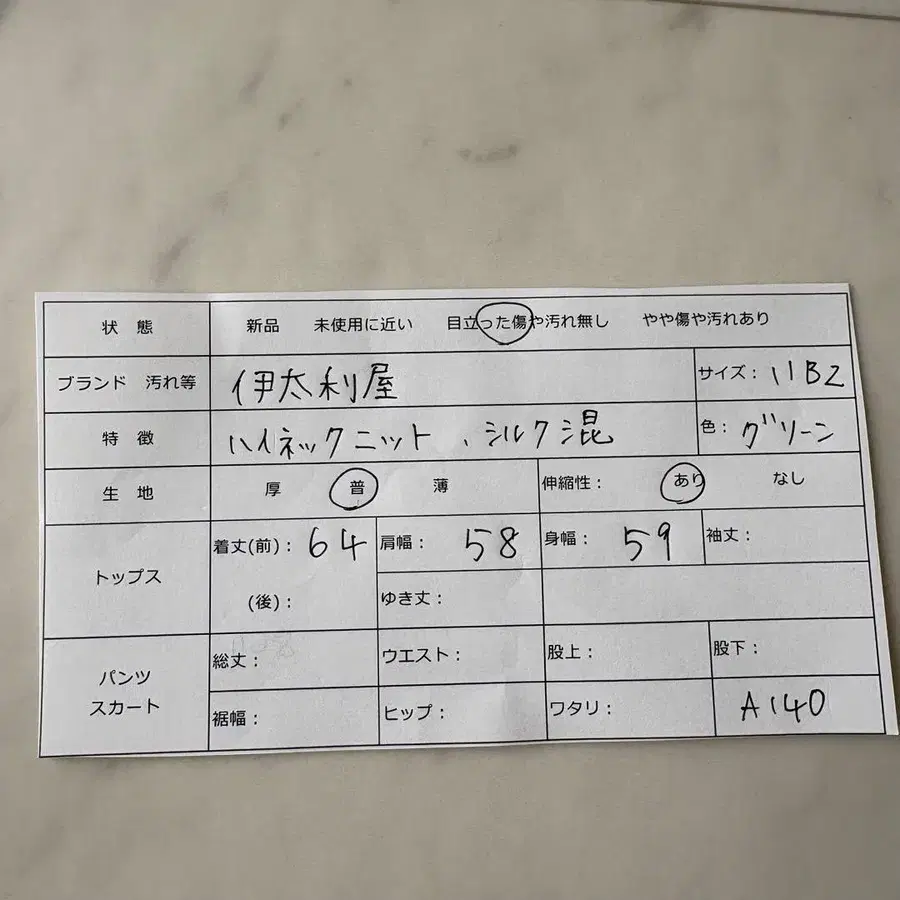 状 態 新品 未使用に近い 目立った傷や汚れ無し やや傷や汚れあり
ブランド 汚れ等 伊太利屋 サイズ: 11B2
特 徴 ハイネックニット、シルク混 色: グリーン
生 地 厚 普 薄 伸縮性: あり なし
トップス 着丈(前): 64 肩幅: 58 身幅: 59 袖丈:
(後): ゆき丈:
パンツ 総丈: ウエスト: 股上: 股下:
スカート 裾幅: ヒップ: ワタリ: A140